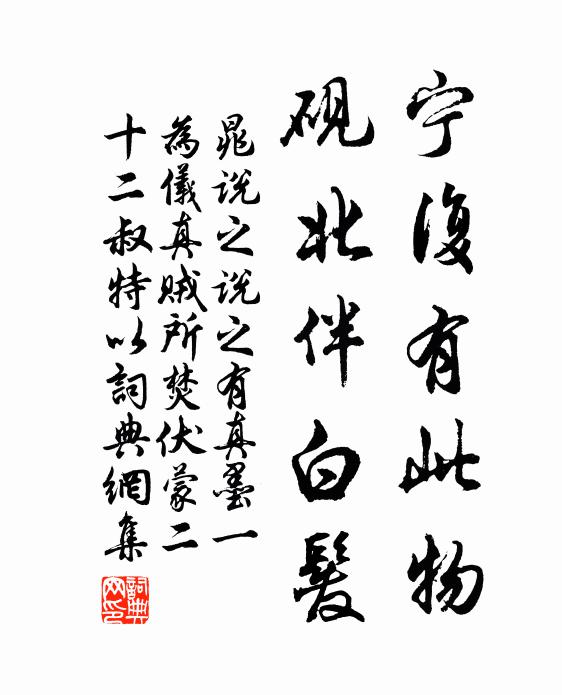 宁復有此物
硯北伴白髮
晁說之說之有真墨一
為儀真賊所焚伏蒙二
十二叔特以詞典網集
詞典
网印